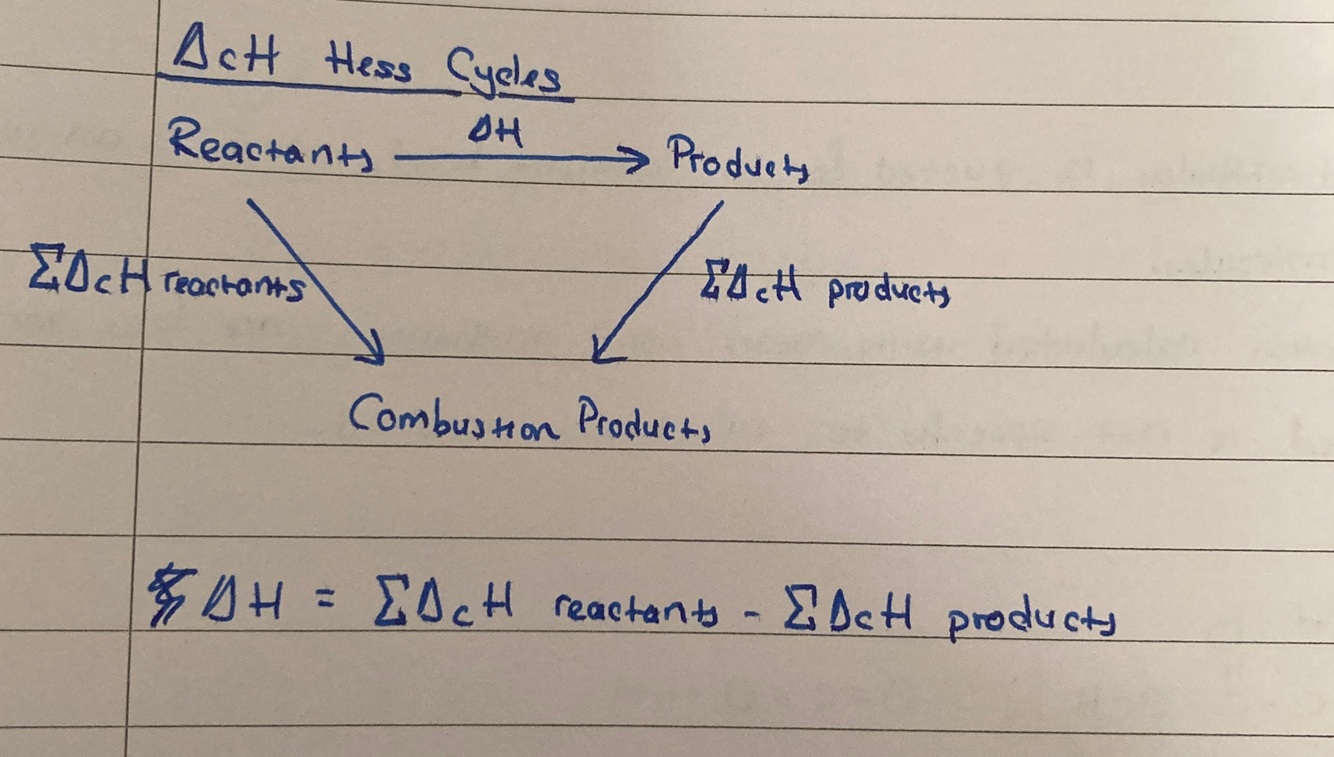 ΔcH Hess Cycles
ΔH
Reactants → Products
ΣΔcH reactants
ΣΔcH products
Combustion Products
ΔH = ΣΔcH reactants - ΣΔcH products